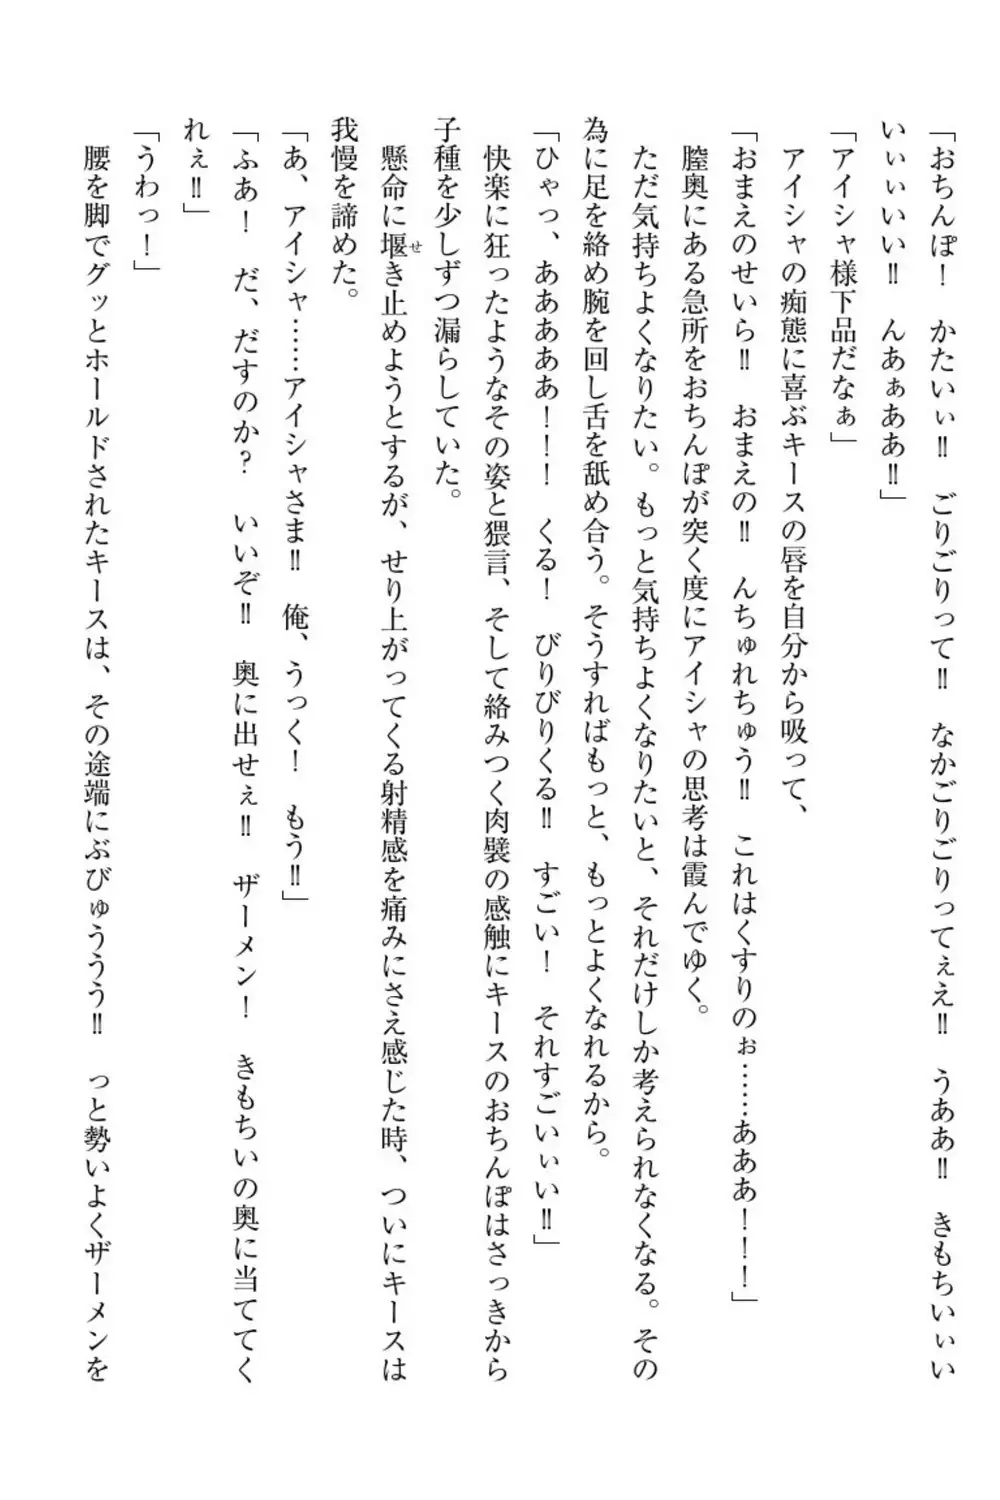 「おちんぽ！　かたいぃ‼　ごりごりって‼　なかごりごりってぇえ‼　うああ‼　きもちいぃい
いぃぃいい‼　んあぁああ‼」
「アイシャ様下品だなぁ」
アイシャの痴態に喜ぶキースの唇を自分から吸って、
「おまえのせいら‼　おまえの‼　んちゅれちゅう‼　これはくすりのぉ……あああ！！！」
膣奥にある急所をおちんぽが突く度にアイシャの思考は霞んでゆく。
ただ気持ちよくなりたい。もっと気持ちよくなりたいと、それだけしか考えられなくなる。その
為に足を絡め腕を回し舌を舐め合う。そうすればもっと、もっとよくなれるから。
「ひゃっ、あああああ！！！　くる！　びりびりくる‼　すごい！　それすごいぃい‼」
快楽に狂ったようなその姿と猥言、そして絡みつく肉襞の感触にキースのおちんぽはさっきから
子種を少しずつ漏らしていた。
懸命に堰せき止めようとするが、せり上がってくる射精感を痛みにさえ感じた時、ついにキースは
我慢を諦めた。
「あ、アイシャ……アイシャさま‼　俺、うっく！　もう‼」
「ふあ！　だ、だすのか？　いいぞ‼　奥に出せぇ‼　ザーメン！　きもちいの奥に当ててく
れぇ‼」
「うわっ！」
腰を脚でグッとホールドされたキースは、その途端にぶびゅううう‼　っと勢いよくザーメンを